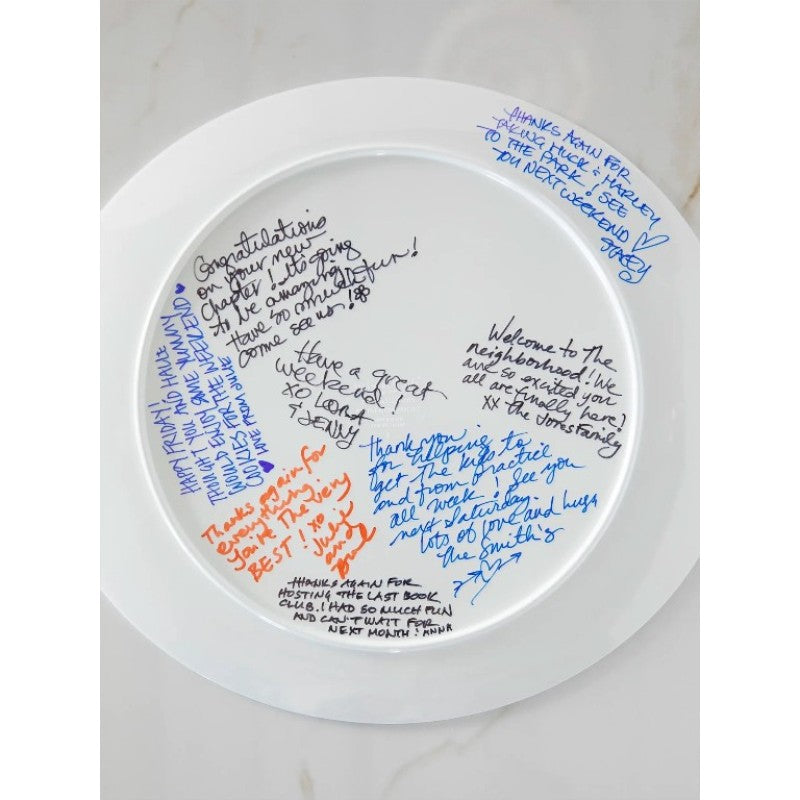 THANKS AGAIN FOR
TAKING HUCK & HARLEY
TO THE PARK! SEE
YOU NEXT WEEKEND ♡
STACEY
Congratulations
on your new
Chapter! It's going
to be amazing
Have so much fun!
Come see us!
HAPPY FRIDAY!
THOUGHT YOU AND HALE
WOULD ENJOY SOME YUMMY
COOKIES FOR THE WEEKEND ♥
♥ LOVE FROM JULIE
Have a great
weekend!
XO LORA
& JENNY
Welcome to The
neighborhood! We
are so excited you
all are finally here!
XX - The Jones Family
Thank you
for helping to
get the kids to
and from practice
all week! See you
next Saturday.
Lots of love and hugs
The Smith's
Thanks again for
everything.
You're The very
BEST! XO
Julie
and
THANKS AGAIN FOR
HOSTING THE LAST BOOK
CLUB! I HAD SO MUCH FUN
AND CAN'T WAIT FOR
NEXT MONTH! ANNA